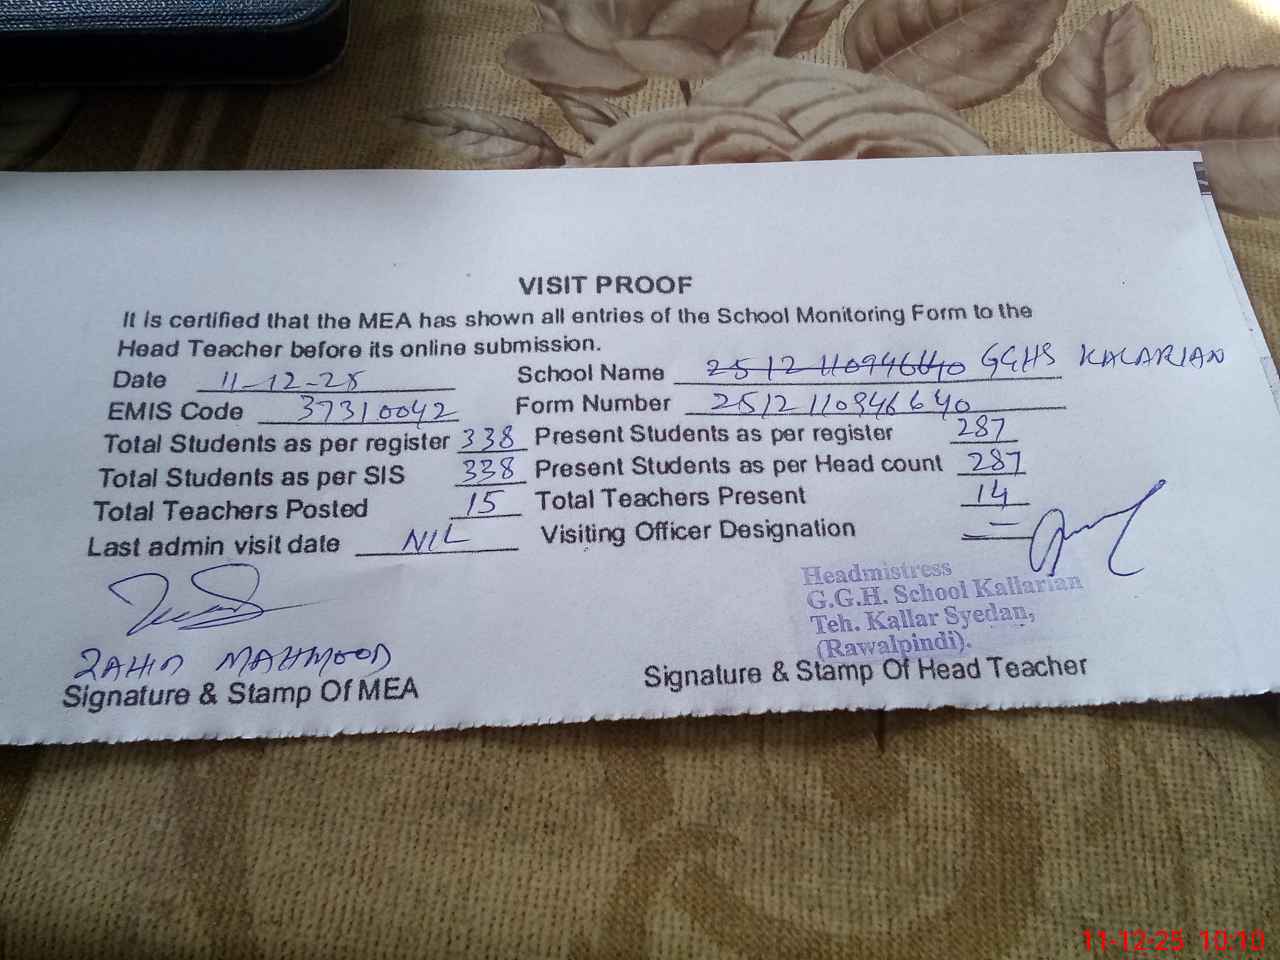 VISIT PROOF
It is certified that the MEA has shown all entries of the School Monitoring Form to the
Head Teacher before its online submission.
Date 11-12-25 School Name 2512110946640 GGHS KALARIAN
EMIS Code 37310042 Form Number 25121110946640
Total Students as per register 338 Present Students as per register 287
Total Students as per SIS 338 Present Students as per Head count 287
Total Teachers Posted 15 Total Teachers Present 14
Last admin visit date NIL Visiting Officer Designation =
Headmistress
G.G.H. School Kallarian
Teh. Kallar Syedan,
(Rawalpindi).
MAHMOOD
Signature & Stamp Of MEA Signature & Stamp Of Head Teacher
11-12-25 10:10